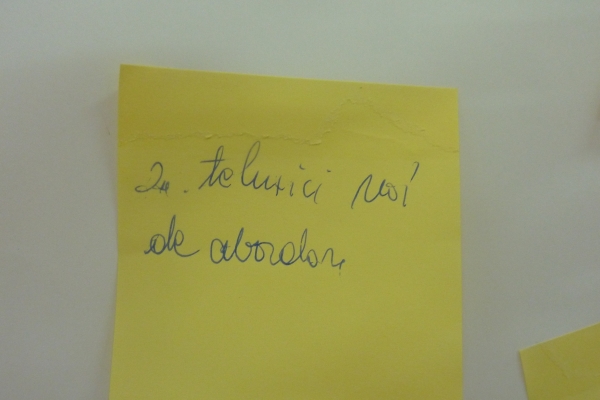 2. tehnici noi
de abordare